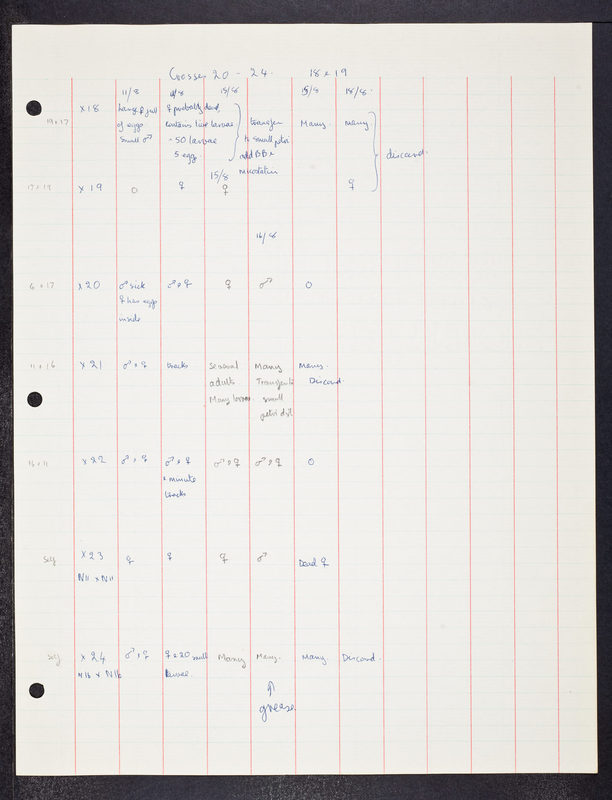 Crosses 20 - 24. 18 & 19
11/8 15/8 15/8 18/8.
19 x 17 x 18 Large ♀ full of eggs small ♂
♀ probably dead contains live larvae
~50 larvae
5 eggs.
transfer to small petri
add BB &
Many. Many
discard.
17 x 19 x 19 0 ♀ 15/8 ♀ ♀
16/8
6 x 17 x 20 ♂ sick
♀ has eggs
inside
♂ & ♀ ♀ ♂ 0
11 x 16 x 21 ♂ & ♀ tracks Several
adults
Many larvae.
Many
Transfer to
small
petri dish
Many.
Discard
16 x 11 x 22 ♂ & ♀ ♂ & ♀
& minute
tracks
♂ & ♀ ♂ & ♀ 0
seg x 23
N11 x N11
♀ ♀ ♀ ♂ Dead ♀
seg x 24
N16 x N16
♂ & ♀ ♀ & 20 small
larvae.
Many Many. Many Discard.
↑
grease